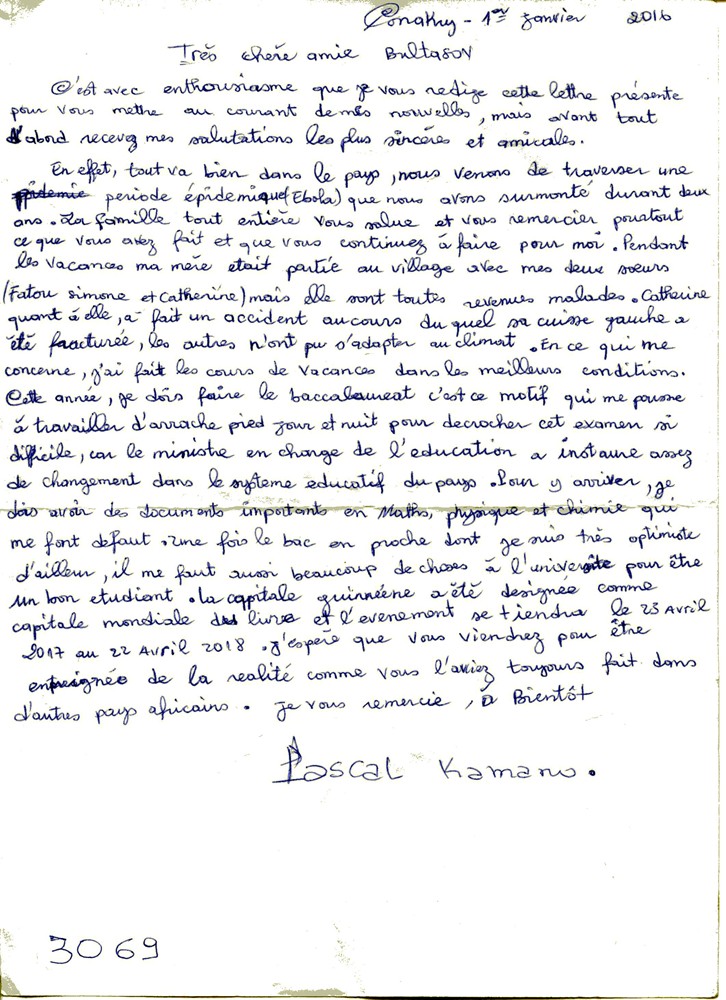 Conakry - 1er janvier 2016
Très chère amie Bultason
C'est avec enthousiasme que je vous redige cette lettre présente
pour vous mettre au courant de mes nouvelles, mais avant tout
d'abord recevez mes salutations les plus sincères et amicales.
En effet, tout va bien dans le pays, nous venons de traverser une
periode épidemique (Ebola) que nous avons surmonté durant deux
ans. La famille tout entière vous salue et vous remercier pour tout
ce que vous avez fait et que vous continuez à faire pour moi. Pendant
les vacances ma mère etait partie au village avec mes deux soeurs
(Fatou simone et Catherine) mais elle sont toutes revenues malades. Catherine
quant à elle, a fait un accident au cours du quel sa cuisse gauche a
été fracturée, les autres n'ont pu s'adapter au climat. En ce qui me
concerne, j'ai fait les cours de vacances dans les meilleurs conditions.
Cette année, je dois faire le baccalaureat c'est ce motif qui me pousse
à travailler d'arrache pied jour et nuit pour decrocher cet examen si
difficile, car le ministre en charge de l'education a instaure assez
de changement dans le système educatif du pays. Pour y arriver, je
dois avoir des documents importants en Maths, physique et chimie qui
me font defaut. Une fois le bac en proche dont je suis très optimiste
d'ailleur, il me faut aussi beaucoup de choses à l'universite pour être
un bon etudiant. la capitale guinnéene a été designée comme
capitale mondiale du livre et l'evenement se tiendra le 23 Avril
2017 au 22 Avril 2018. j'espère que vous viendrez pour être
enseignée de la realité comme vous l'aviez toujours fait dans
d'autres pays africains. je vous remercie, à Bientôt
Pascal Kamano.
3069